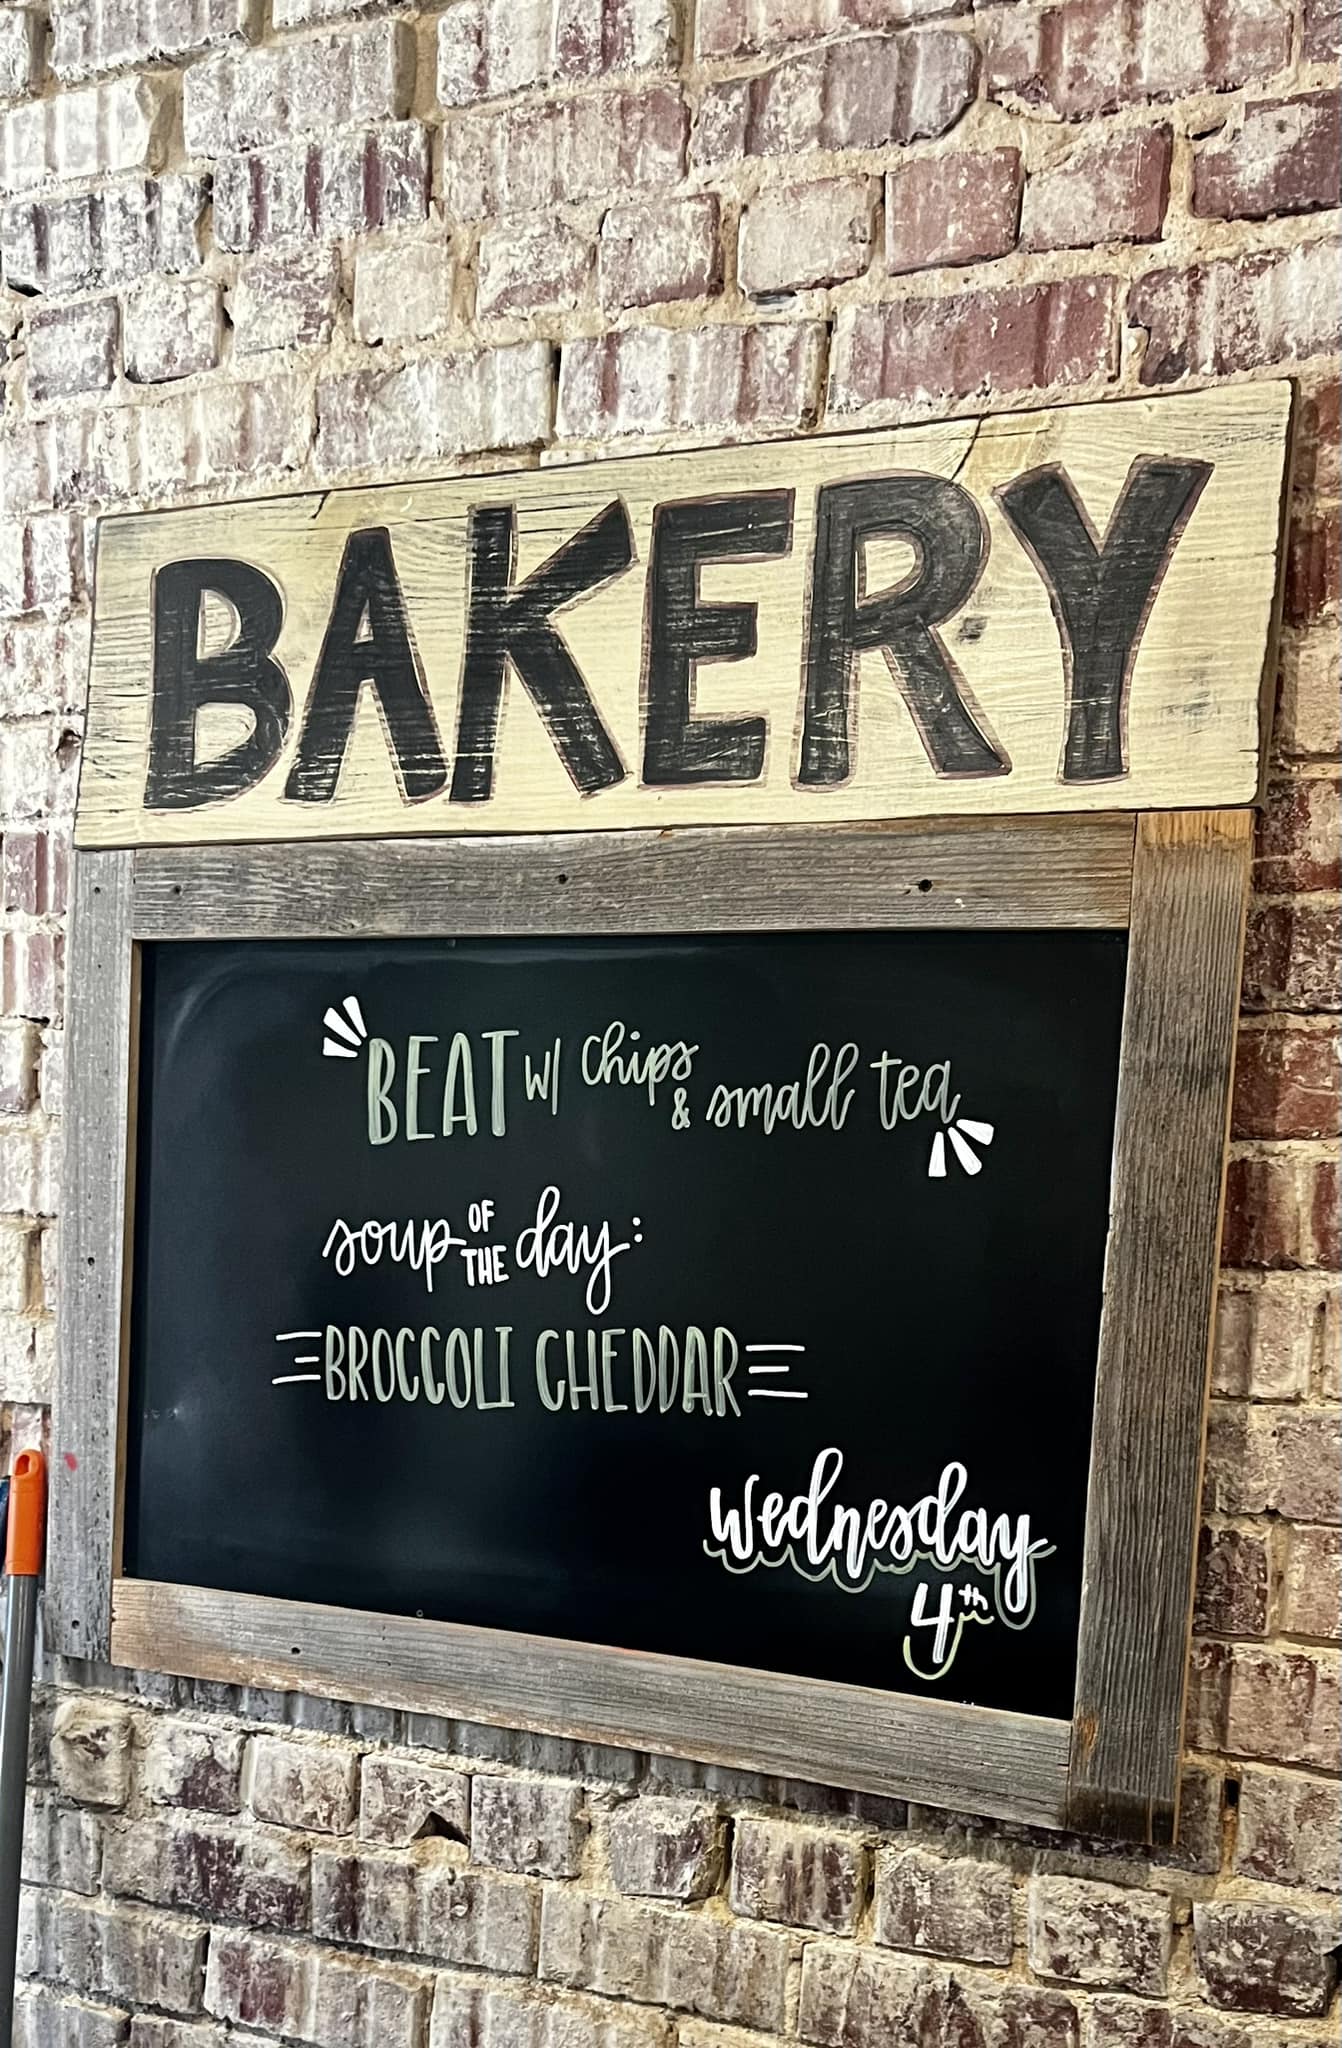 BAKERY
BEAT w/ chips & small tea
soup OF THE day:
BROCCOLI CHEDDAR
Wednesday
4th